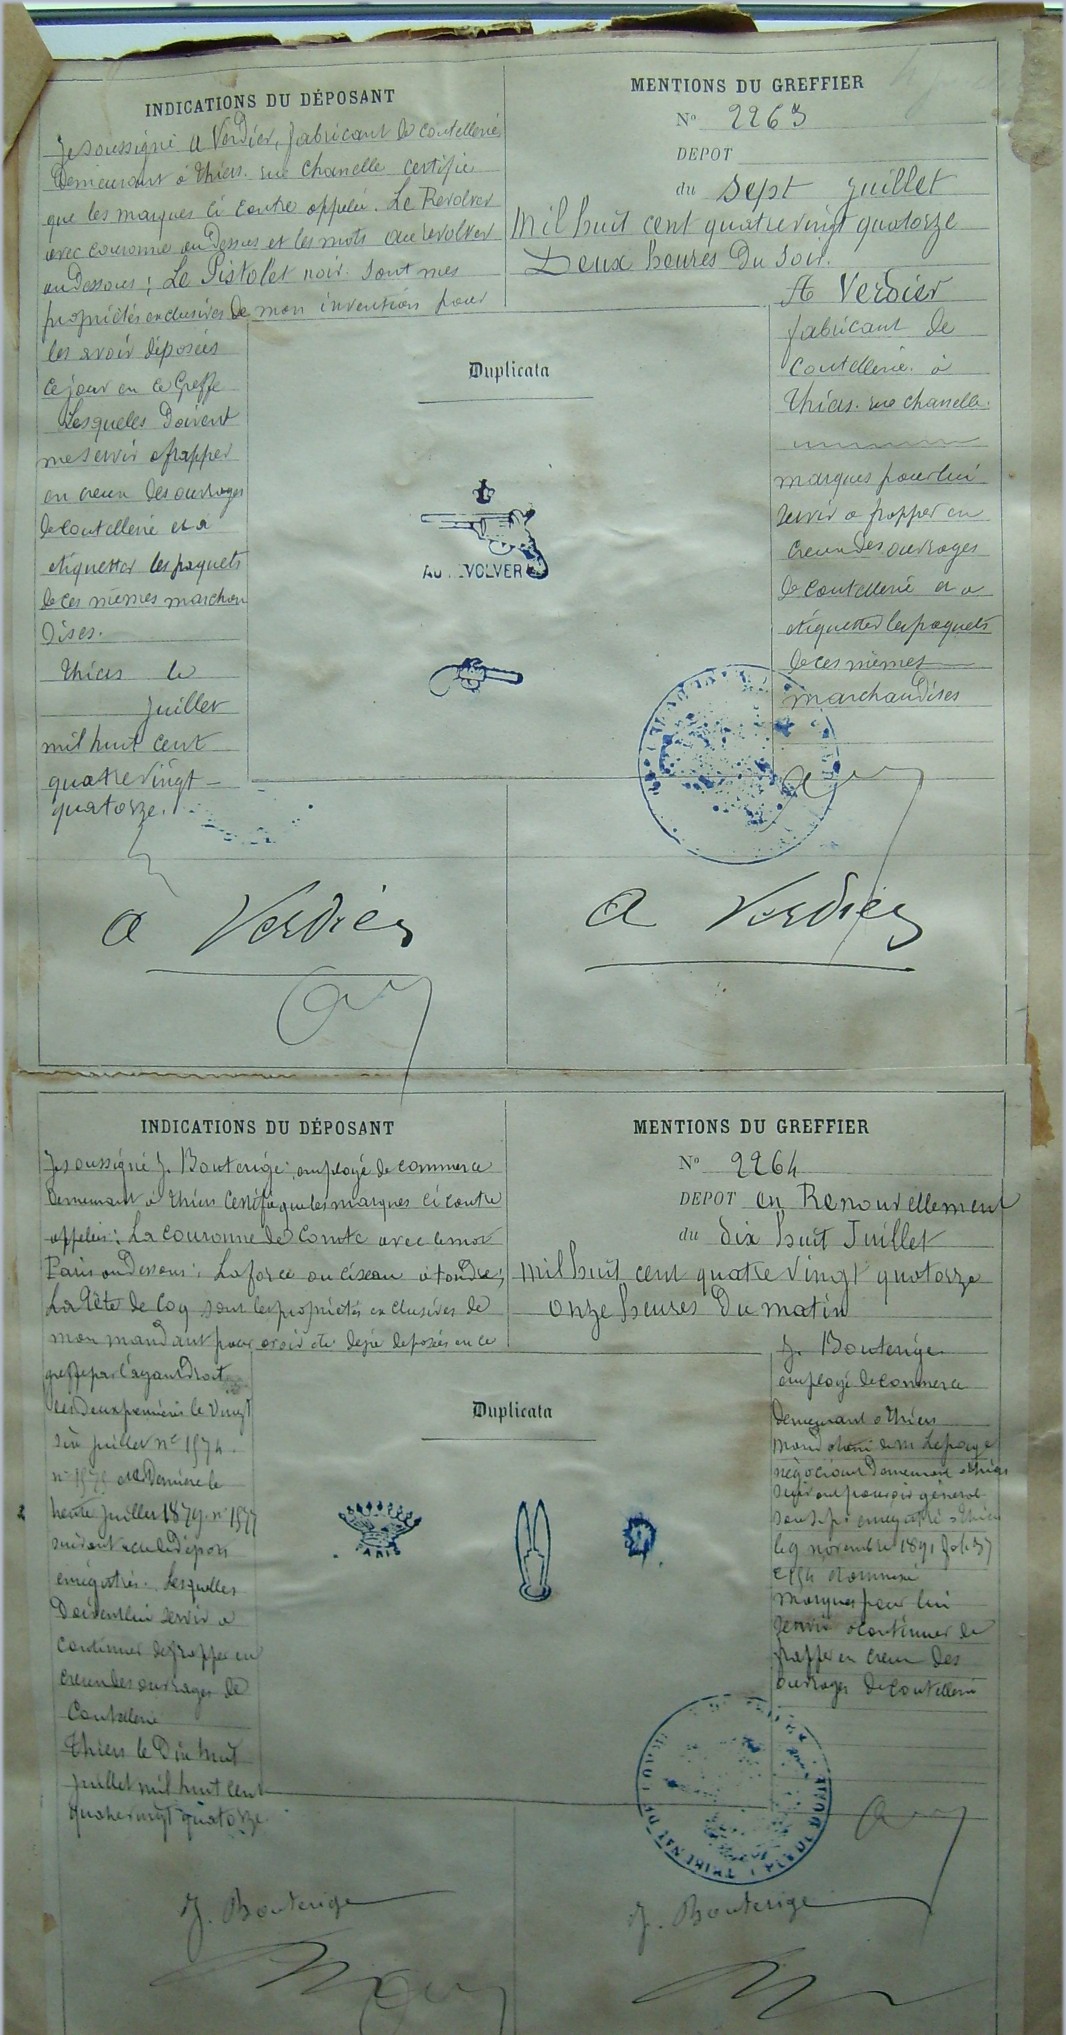 INDICATIONS DU DÉPOSANT
Je soussigné A Verdier, fabricant de coutellerie
Demeurant à Thiers. rue Chanelle certifie
que les marques ci contre appelée. Le Revolver
avec couronne au Dessus et les mots au revolver
au Dessous; Le Pistolet noir. sont mes
propriétés exclusives De mon invention pour
les avoir déposées
ce jour en ce Greffe
Lesquelles Doivent
me servir a frapper
en creux des ouvrages
de coutellerie et à
etiquetter les paquets
de ces mêmes marchan
Dises.
Thiers le
Juillet
mil huit cent
quatre vingt
quatorze.
MENTIONS DU GREFFIER
No 2263
DEPOT
du sept Juillet
Mil huit cent quatre vingt quatorze
Deux heures Du Soir.
A Verdier
fabricant de
Coutellerie. à
Thiers. rue Chanelle.
marques pour lui
servir a frapper en
creux des ouvrages
de coutellerie et a
etiquetter les paquets
de ces mêmes
marchandises
Duplicata
AU VOLVER
A Verdier
A Verdier
INDICATIONS DU DÉPOSANT
Je soussigné J. Bouterige employé de commerce
Demeurant à Thiers Certifie que les marques ci contre
appelées: La Couronne de Comte avec le mot
Paris au Dessous; La force ou ciseau à tondre;
La Tête de Coq sont les propriétés exclusives de
mon mandant pour avoir été déjà déposées en ce
greffe par l'ayant Droit
les Deux premières le Vingt
six Juillet no 1574.
no 1575 et la Dernière le
trente Juillet 1879. no 1577
suivant acte de dépôt
enregistrés. Lesquelles
Doivent lui servir a
continuer de frapper en
creux des ouvrages de
Coutellerie
Thiers le Dix huit
juillet mil huit cent
quatre vingt quatorze.
MENTIONS DU GREFFIER
No 2264
DEPOT en Renouvellement
du dix huit Juillet
mil huit cent quatre Vingt quatorze
onze heures Du matin
J. Bouterige
employé de commerce
demeurant a Thiers
mandataire de M. Lepage
négociant Demeurant a Thiers
suivant pouvoir général
enregistré a Thiers
le 9 novembre 1891
marques pour lui
servir a continuer de
frapper en creux des
ouvrages de coutellerie
Duplicata
PARIS
J. Bouterige
J. Bouterige